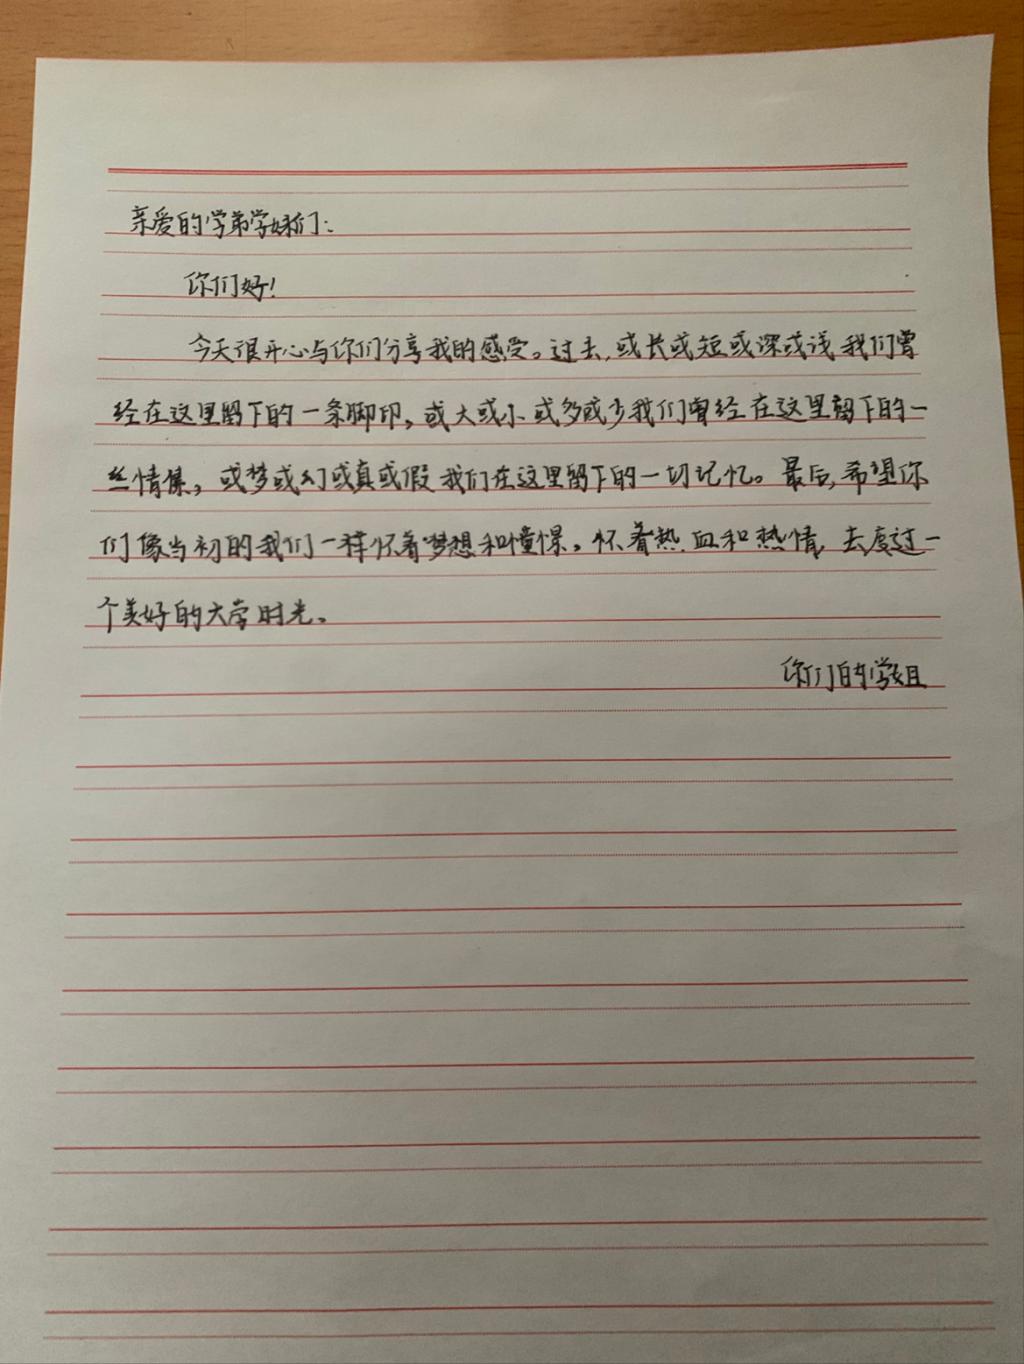 亲爱的学弟学妹们:
你们好!
今天很开心与你们分享我的感受。过去,或长或短或深或浅我们曾
经在这里留下的一条脚印,或大或小或多或少我们曾经在这里留下的一
丝情愫,或梦或幻或真或假我们在这里留下的一切记忆。最后,希望你
们像当初的我们一样怀着梦想和憧憬,怀着热血和热情,去度过一
个美好的大学时光。
你们的学姐